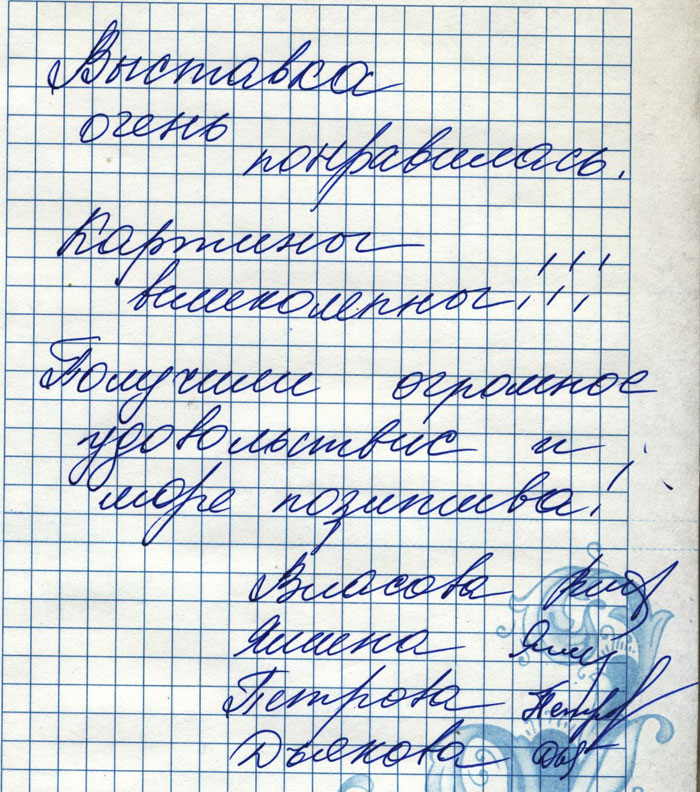 Выставка
очень
понравилась.
Картины
великолепны!!!
Получили огромное
удовольствие и
море позитива!
Власова
Петрова
Дьякова